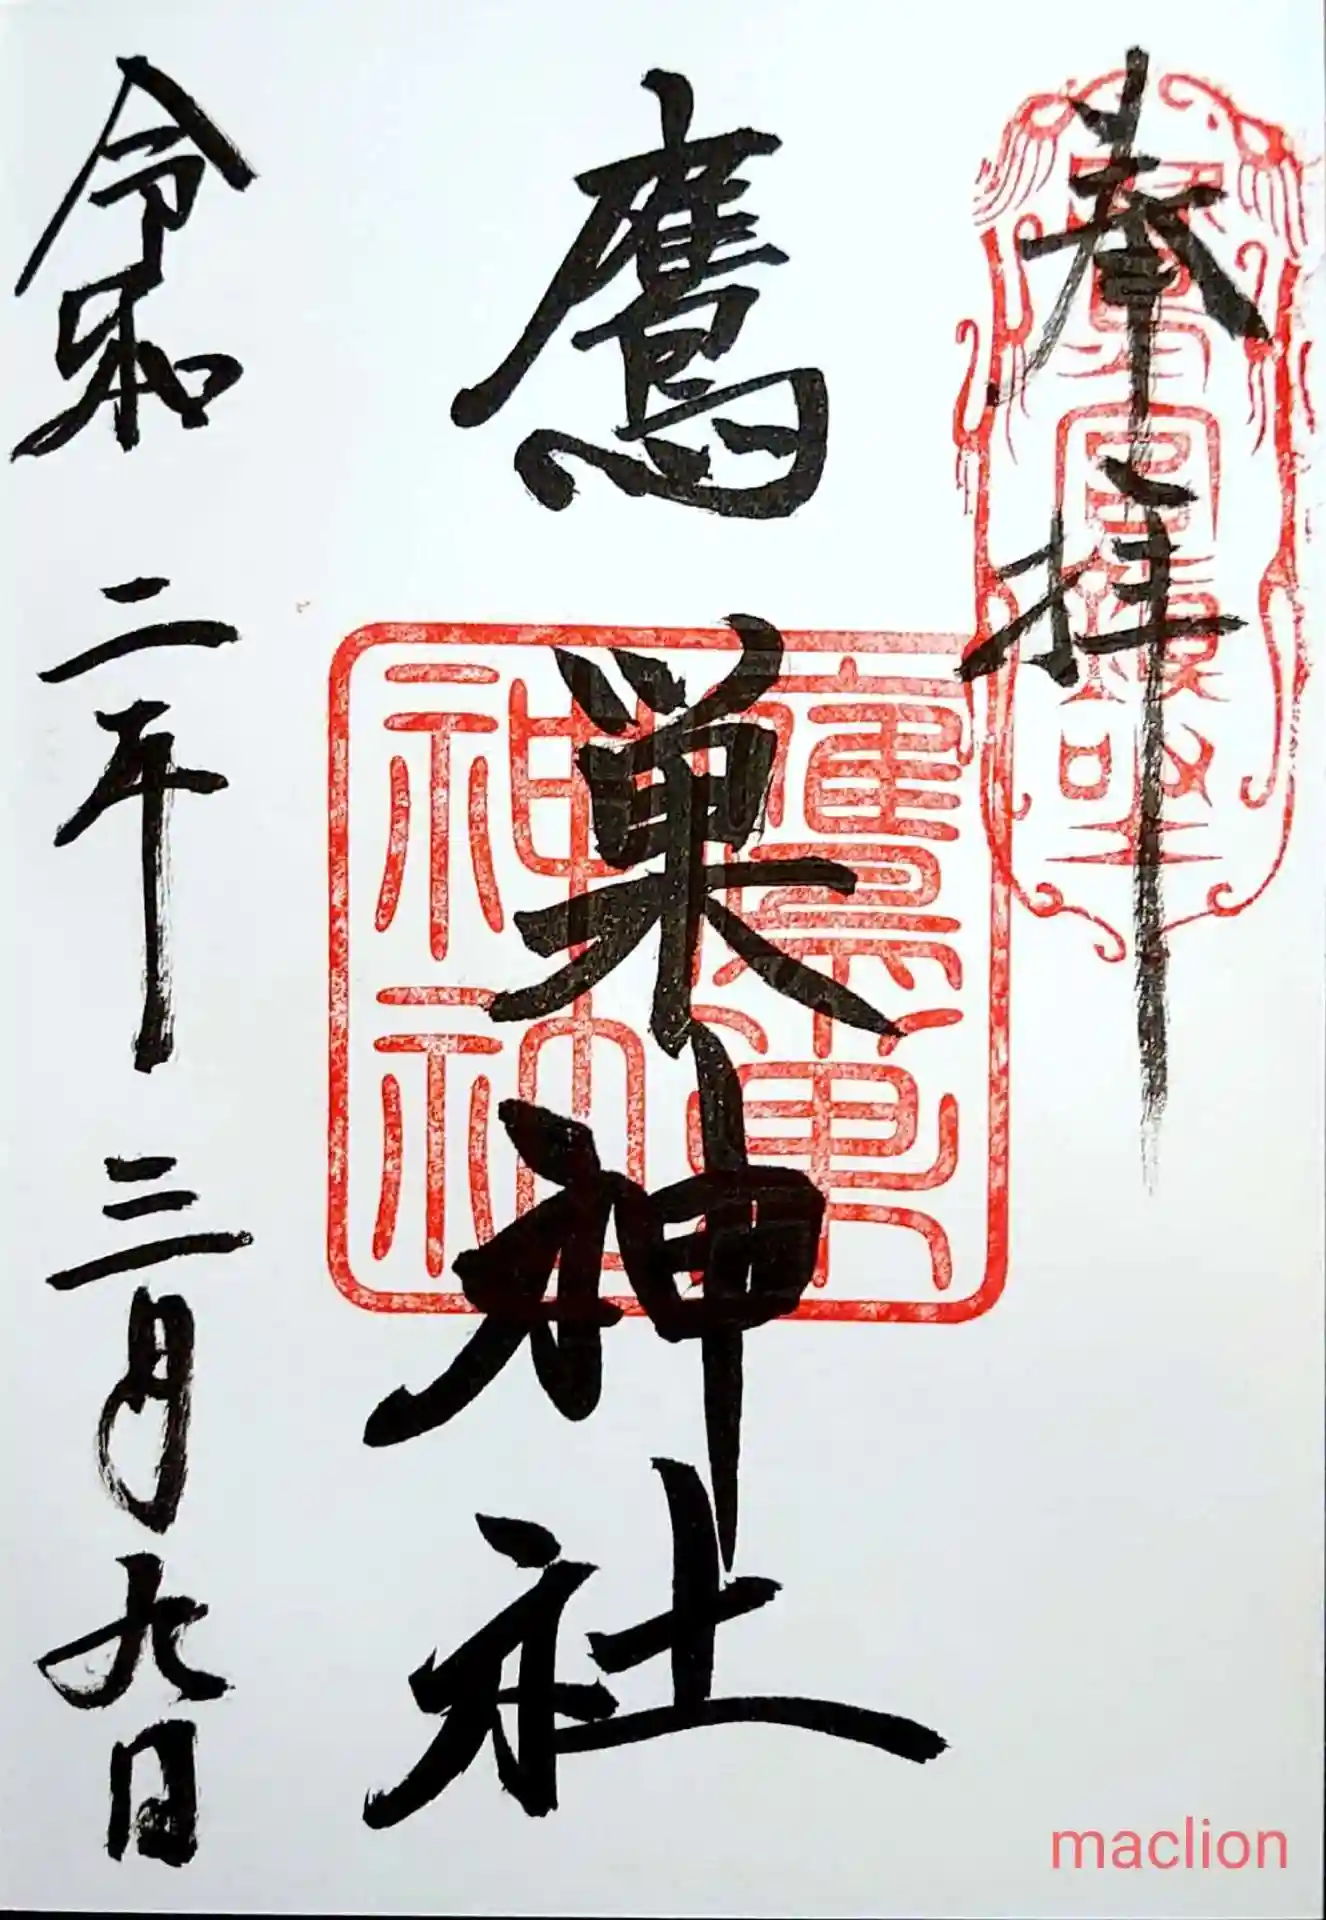 奉拝
鷹巣神社
令和二年三月九日
鷹巣神社
maclion